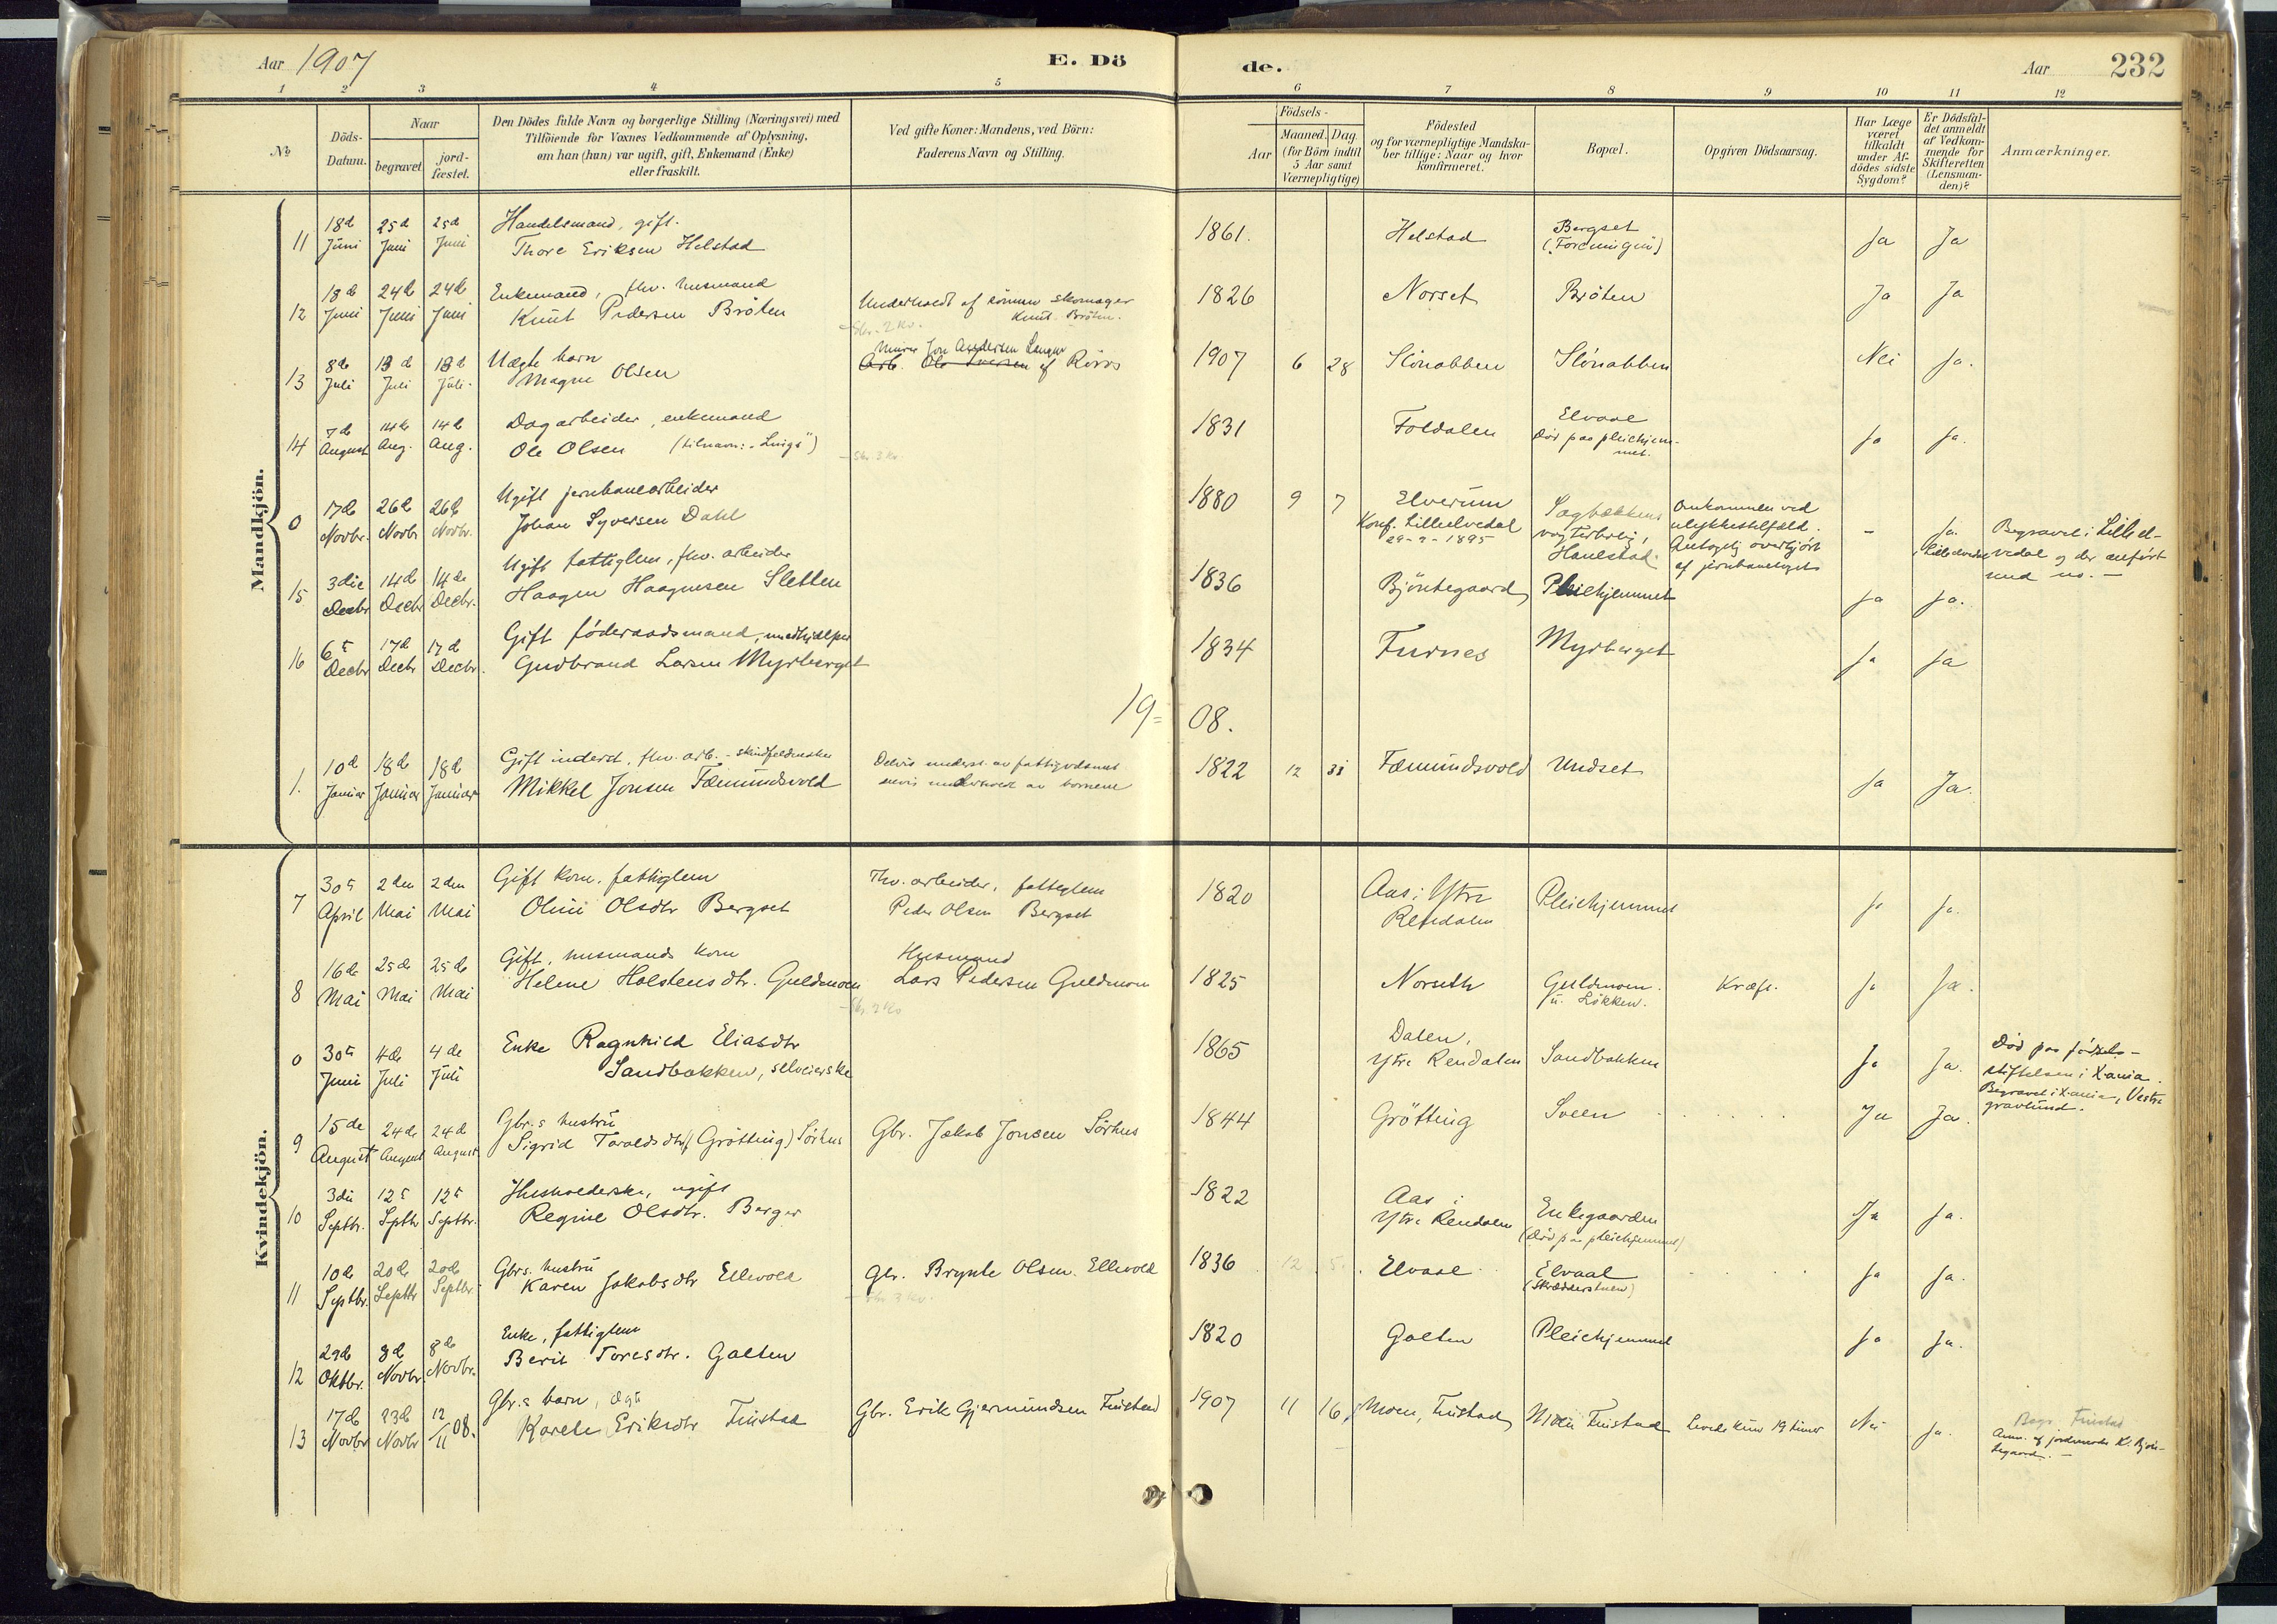 Aar 1907
E. Dö
de.
Aar
232
1 2 3 4 5 6 7 8 9 10 11 12
№
Döds-
Datum.
Naar
begravet
jord-
fæstet.
Den Dödes fulde Navn og borgerlige Stilling (Næringsvei) med
Tilföiende for Voxnes Vedkommende af Oplysning,
om han (hun) var ugift, gift, Enkemand (Enke)
eller fraskilt.
Ved gifte Koner: Mandens, ved Börn:
Faderens Navn og Stilling.
Födsels-
Aar
Maaned. Dag.
(for Börn indtil
5 Aar samt
Værnepligtige)
Födested
og for værnepligtige Mandska-
ber tillige: Naar og hvor
konfirmeret.
Bopæl.
Opgiven Dödsaarsag.
Har Læge
været
tilkaldt
under Af-
dödes sidste
Sygdom?
Er Dödsfal-
det anmeldt
af Vedkom-
mende for
Skifteretten
(Lensman-
den)?
Anmærkninger.
Mandkjön.
11 18d Juni 25d Juni 25d Juni
Handelsmand, gift.
Thore Eriksen Helstad
1861.
Helstad
Bergset
Ja Ja
12 18d Juni 24d Juni 24d Juni
Enkemand, fhv. husmand
Knut Pedersen Bröten
Underholdt af sönnen skomager
Knut Bröten.
1826
Norset
Bröten
Ja Ja
13 8d Juli 13d Juli 13d Juli
Uægte barn
Magne Olsen
Arb. Ole Iversen af Röros
1907 6 28
Nei Ja.
14 7d August 14d Aug. 14d Aug.
Dagarbeider, enkemand
Ole Olsen
1831
Foldalen
Elvaal
Död paa pleiehjem-
met.
Ja Ja.
0 17d Novbr. 26d Novbr 26d Novbr.
Ugift jernbanearbeider
Johan Syversen Dahl
1880 9 7
Elverum
Konf. Lilleelvedal
Hanestad
Omkommen ved
ulykkestilfæld.
Antagelig overkjört
af jernbanetoget
- Ja.
Begravet i Lilleel-
vedal og der anfört
med no. -
15 3die Decbr 14d Decbr 14de Decbr.
Ugift fattiglem, fhv. arbeider
Haagen Haagensen Sletten
1836
Bjöntegaard
Pleiehjemmet
Ja Ja.
16 6te Decbr 17d Decbr 17d Decbr.
Gift föderaadsmand, medhjælper
Gudbrand Larsen Myrberget
1834
Furnes
Myrberget
Ja Ja
19=08.
1. 10d Januar 18d Januar 18d Januar
Mikkel Jonsen Fæmundsvold
1822 12 31
Fæmundsvold
Undset
Ja Ja.
Kvindekjön.
7 30te April 2den Mai 2den Mai
Gift kone. fattiglem
Oline Olsdtr Bergset
Fhv. arbeider, fattiglem
Peder Olsen Bergset
1820
Aas i Ytre
Rendalen
Pleiehjemmet
Ja Ja.
8 16de Mai 25de Mai 25de Mai
Gift, husmands kone
Helene Holstensdtr. Guldmoen
Husmand
Lars Pedersen Guldmoen
1825
Norseth
Guldmoen.
u. Lökken.
Kræft.
Ja Ja.
0 30te Juni 4de Juli 4de Juli
Enke Ragnhild Eliasdtr
Sandbakken, selveierske
1865
Dalen,
Ytre Rendalen
Sandbakken
Ja Ja.
Död paa fødsels-
stiftelsen i X.ania.
Begravet i X.ania, Vestre
gravlund.
9 15de August 24de August 24d August
Gbr.s hustru
Sigrid Taraldsdtr (Grötting) Sörhus
Gbr. Jakob Jonsen Sörhus
1844
Grötting
Sveen
Ja Ja.
10 3die Septbr. 12te Septbr 12te Septbr.
Husholderske, ugift
Regine Olsdtr. Berger
1822
Aas i
Ytre Rendalen
Enkegaarden
(Död paa pleiehjemmet)
Ja Ja.
11 10d Septbr. 20d Septbr 20de Septbr.
Gbrs. hustru
Karen Jakobsdtr Ellevold
Gbr. Brynte Olsen Ellevold
1836 12 5.
Elvaal
Elvaal
(Skrædderstuen)
Ja Ja.
12 29d Oktbr. 8d Novbr. 8de Novbr.
Enke, fattiglem
Berit Toresdtr. Galten
1820
Galten
Pleiehjemmet
Ja Ja.
13 17d Novbr 23d Novbr 12/11 08.
Gbr.s barn, ægte
Karete Eriksdtr Finstad
Gbr. Erik Gjermundsen Finstad
1907 11 16
Moen, Finstad
Moen Finstad
Levede kun 19 timer
Nei Ja.